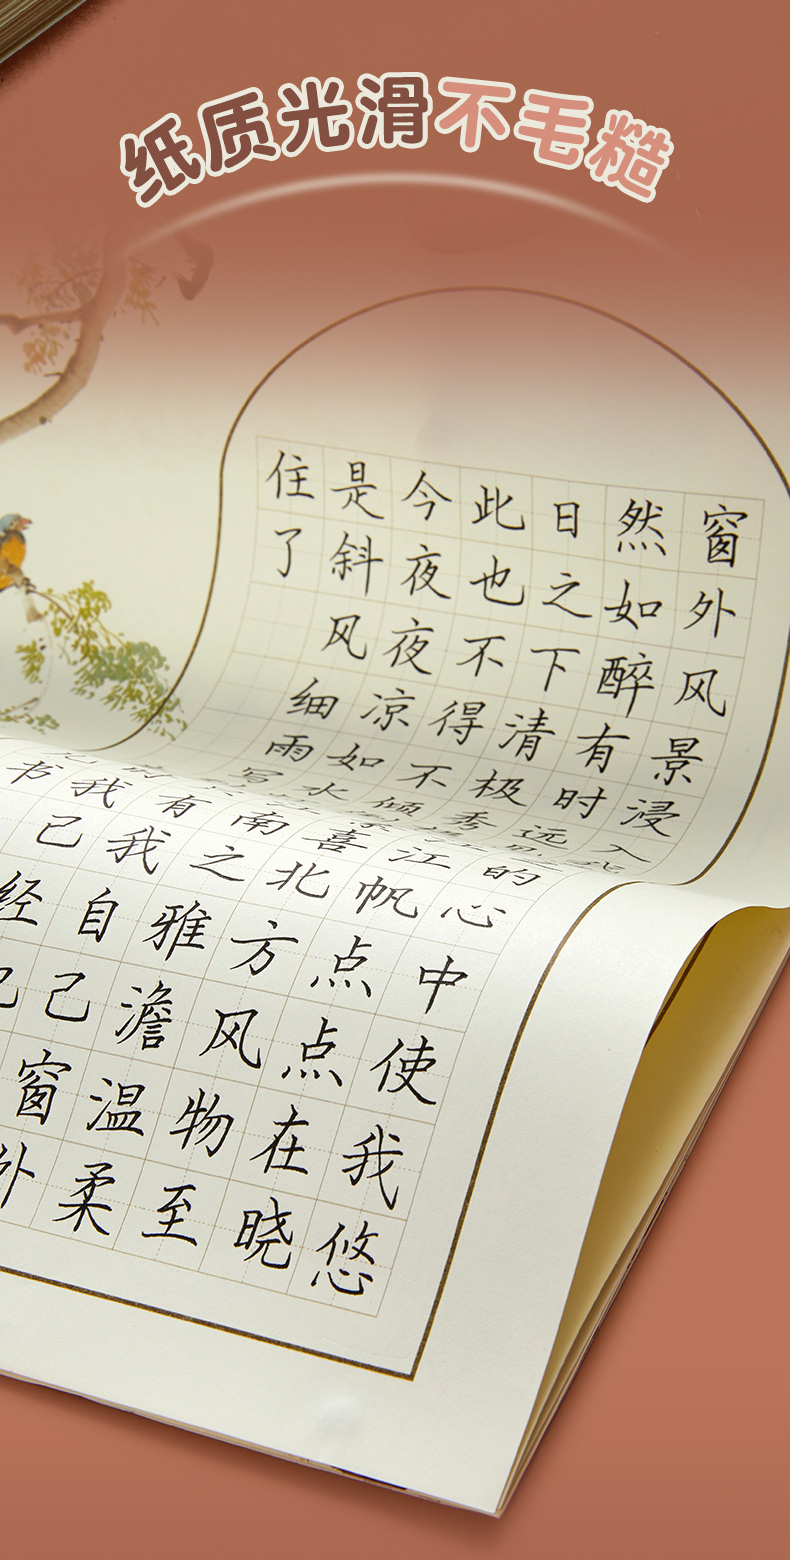 纸质光滑不毛糙
窗外风景浸入
然如醉有时远
日之下清极秀
此也不得不倾
今夜夜凉如水
是斜风细雨写
住了
的心中使我悠
江帆点点在晓
喜北方风物至
南之雅澹温柔
有我自己窗外
我己经
书